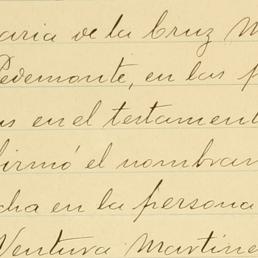 aria de la Cruz M
Pedemonte, en las p
us en el testament
irmó el nombram
cha en la persona
Ventura Martine